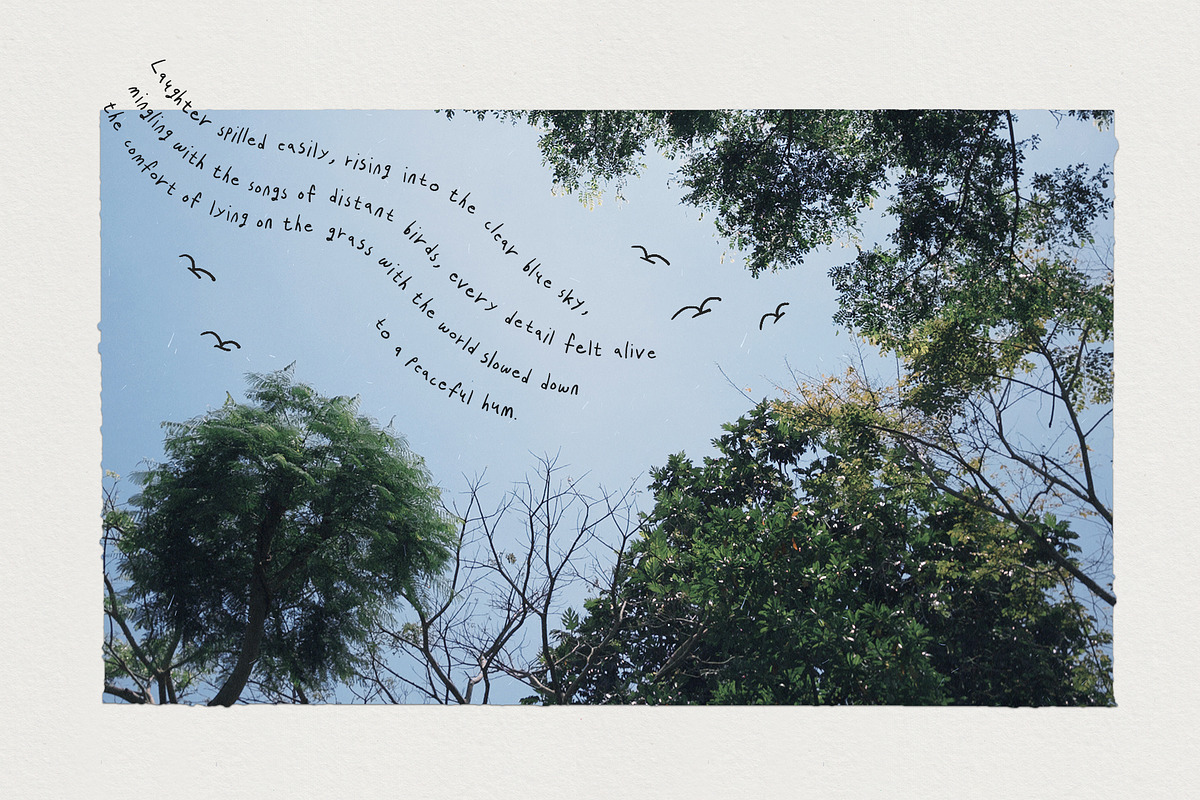 Laughter spilled easily, rising into the clear blue sky,
mingling with the songs of distant birds, every detail felt alive
the comfort of lying on the grass with the world slowed down
to a peaceful hum.